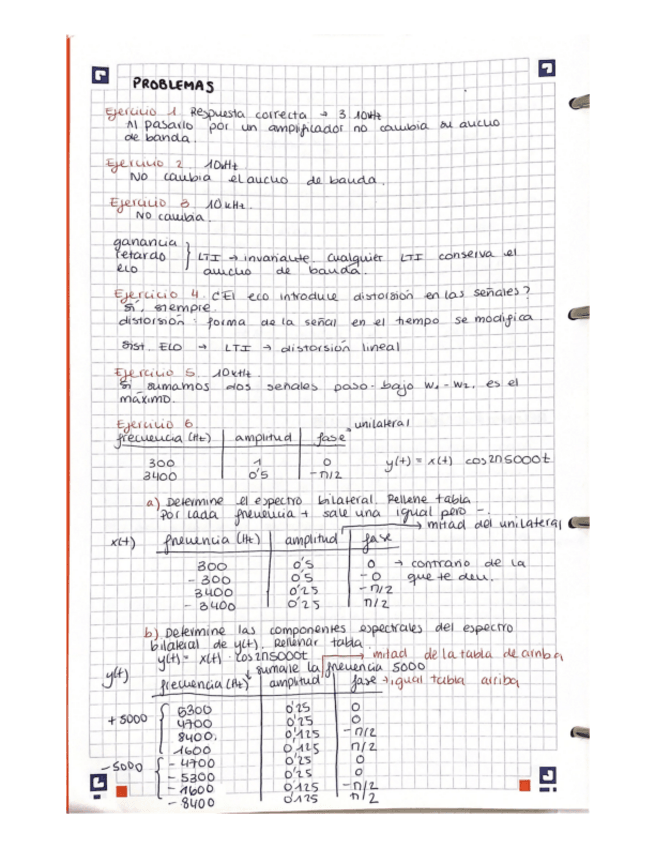 PROBLEMAS
Ejercicio 1. Respuesta correcta → 3. 10kHz
Al pasarlo por un amplificador no cambia su ancho
de banda.
Ejercicio 2. 10kHz
No cambia el ancho de banda.
Ejercicio 3 10kHz.
No cambia.
ganancia
retardo } LTI → invariante. Cualquier LTI conserva el
eco ancho de banda.
Ejercicio 4. ¿El eco introduce distorsión en las señales?
Sí, siempre.
distorsión: forma de la señal en el tiempo se modifica
Sist. ECO → LTI → distorsión lineal
Ejercicio 5. 10kHz.
Si sumamos dos señales paso-bajo W1 - W2, es el
máximo.
Ejercicio 6. unilateral
frecuencia (Hz) | amplitud | fase
300 1 0 y(t) = x(t) cos2π5000t
3400 0'5 -π/2
a) Determine el espectro bilateral. Rellene tabla
Por cada frecuencia + sale una igual pero -.
→ mitad del unilateral
x(t) frecuencia (Hz) | amplitud | fase
300 0'5 0 → contrario de la
- 300 0'5 - 0 que te den.
3400 0'25 - π/2
- 3400 0'25 π/2
b) Determine las componentes espectrales del espectro
bilateral de y(t). Rellenar tabla.
y(t) = x(t) · cos2π5000t → mitad de la tabla de arriba
sumarle la frecuencia 5000
y(t) frecuencia (Hz) | amplitud | fase → igual tabla arriba
+ 5000 { 5300 0'25 0
4700 0'25 0
8400 0'125 - π/2
1600 0'125 π/2
- 5000 { - 4700 0'25 0
- 5300 0'25 0
- 1600 0'125 - π/2
- 8400 0'125 π/2